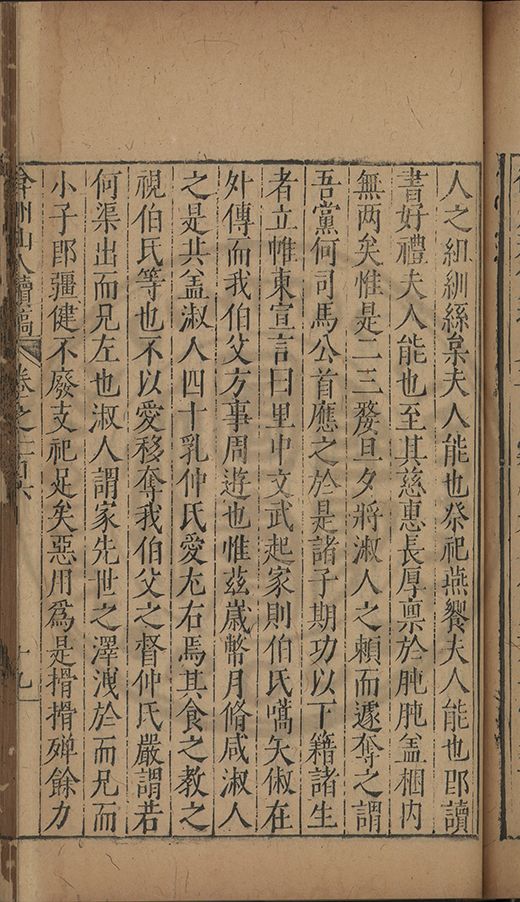 人之組紃絲枲夫人能也祭祀燕饗夫人能也即讀
書好禮夫人能也至其慈惠長厚禀於肫肫盖梱内
無两矣惟是二三嫠旦夕將淑人之賴而遽奪之謂
吾黨何司馬公首應之於是諸子期功以下籍諸生
者立帷東宣言曰里中文武起家則伯氏嚆矢俶在
外傳而我伯父方事周遊也惟兹歲幣月脩咸淑人
之是共盖淑人四十乳仲氏愛左右焉其食之教之
視伯氏等也不以愛移奪我伯父之督仲氏嚴謂若
何渠出而兄左也淑人謂家先世之澤洩於而兄而
小子即彊健不廢支祀足矣惡用爲是搰搰殫餘力
弇州山人續稿 卷之一百六 十九